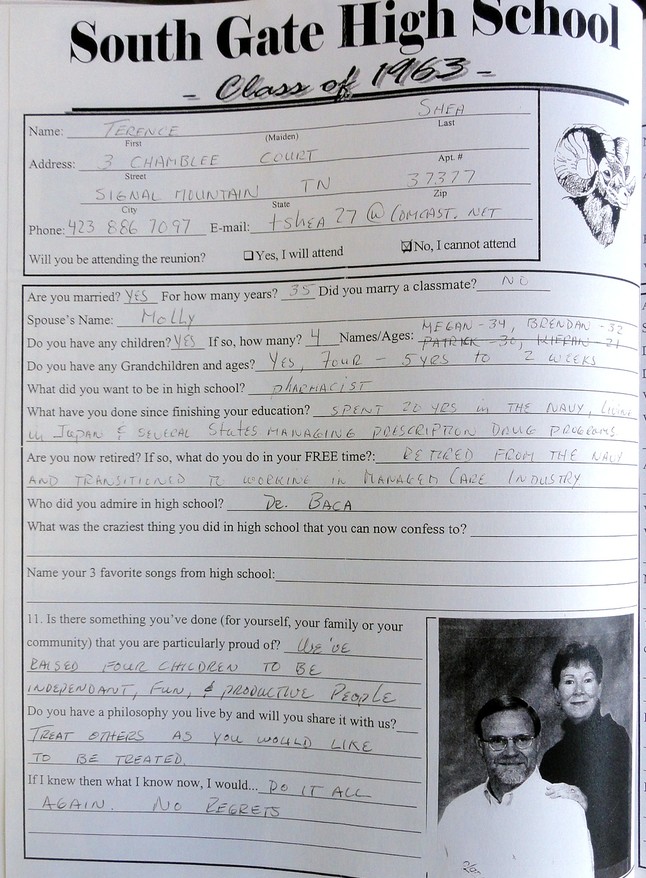 South Gate High School
- Class of 1963 -
Name: TERENCE SHEA
First (Maiden) Last
Address: 3 CHAMBLEE COURT
Street Apt. #
SIGNAL MOUNTAIN TN 37377
City State Zip
Phone: 423 886 7097 E-mail: tshea27@comcast.net
Will you be attending the reunion? ☐Yes, I will attend ☒No, I cannot attend
Are you married? YES For how many years? 35 Did you marry a classmate? NO
Spouse's Name: Molly
MEGAN - 34, BRENDAN - 32
Do you have any children? YES If so, how many? 4 Names/Ages: PATRICK - 30, KIERAN - 21
Do you have any Grandchildren and ages? YES, FOUR - 5 YRS to 2 WEEKS
What did you want to be in high school? PHARMACIST
What have you done since finishing your education? SPENT 20 YRS in THE NAVY, LIVING
in JAPAN & SEVERAL STATES MANAGING PRESCRIPTION DRUG PROGRAMS
Are you now retired? If so, what do you do in your FREE time?: RETIRED FROM THE NAVY
AND TRANSITIONED TO WORKING IN MANAGED CARE INDUSTRY
Who did you admire in high school? DR. BACA
What was the craziest thing you did in high school that you can now confess to?
Name your 3 favorite songs from high school:
11. Is there something you've done (for yourself, your family or your
community) that you are particularly proud of? WE'VE
RAISED FOUR CHILDREN TO BE
INDEPENDANT, FUN, & PRODUCTIVE PEOPLE
Do you have a philosophy you live by and will you share it with us?
TREAT OTHERS AS YOU WOULD LIKE
TO BE TREATED.
If I knew then what I know now, I would... DO IT ALL
AGAIN. NO REGRETS